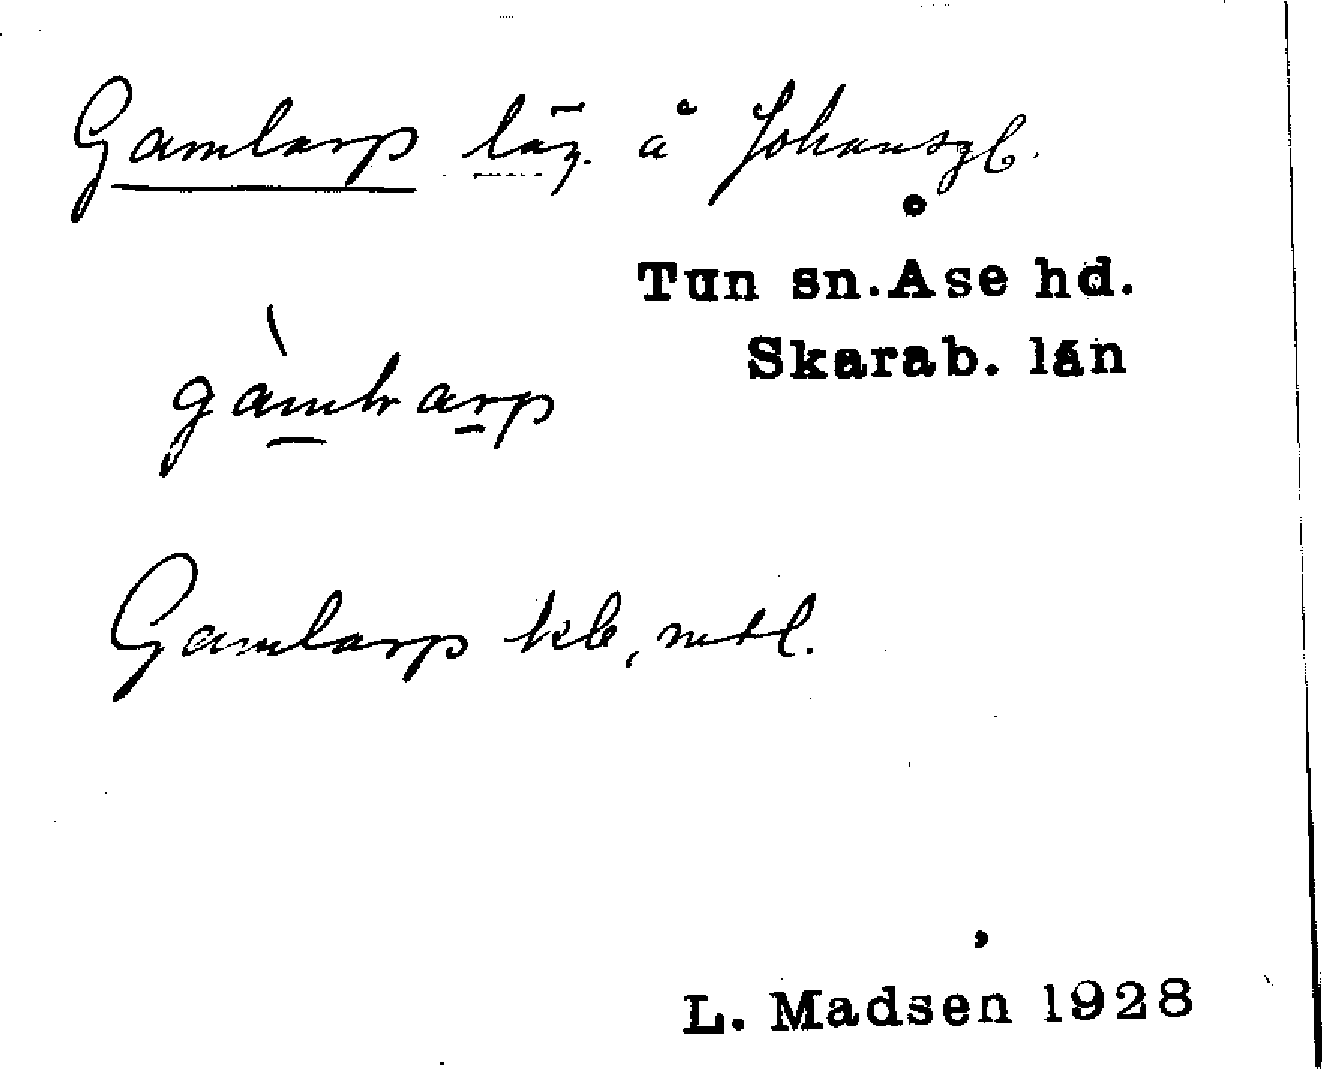 Gamlarp läg. å Johansgb.
Tun sn. Åse hd.
Skarab. län
gamlarp
Gamlarp kb, mtl.
L. Madsen 1928